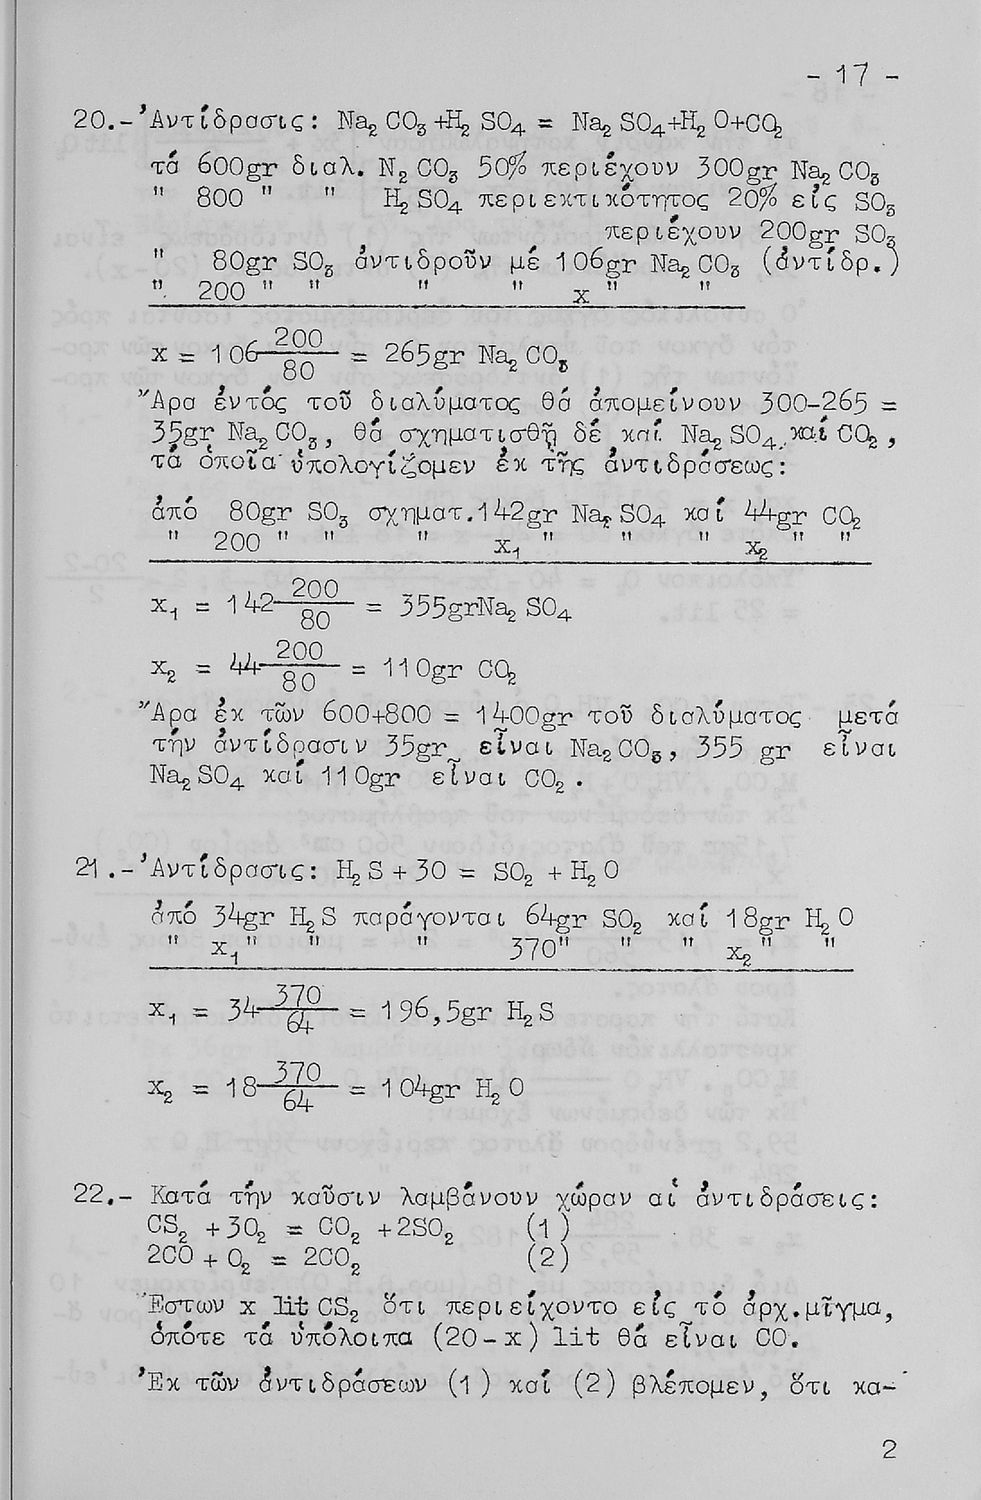 - 17 -
20.-᾿Αντίδρασις: Na₂ CO₃ +H₂ SO₄ = Na₂ SO₄+H₂ O+CO₂
τά 600gr διαλ. N₂ CO₃ 50% περιέχουν 300gr Na₂ CO₃
" 800 " " H₂ SO₄ περιεκτικότητος 20% είς SO₃
περιέχουν 200gr SO₃
" 80gr SO₃ ἀντιδροῦν μέ 106gr Na₂ CO₃ (ἀντίδρ.)
". 200 " " " " x " "
x = 106 200/80 = 265gr Na₂ CO₃
῎Αρα ἐντός τοῦ διαλύματος θά ἀπομείνουν 300-265 =
35gr Na₂ CO₃, θά σχηματισθῇ δέ καί Na₂ SO₄, καί CO₂,
τά ὁποῖα ὑπολογίζομεν ἐκ τῆς ἀντιδράσεως:
ἀπό 80gr SO₃ σχηματ.142gr Na₂ SO₄ καί 44gr CO₂
" 200 " " " x₁ " " " x₂ " "
x₁ = 142 200/80 = 355grNa₂ SO₄
x₂ = 44 200/80 = 110gr CO₂
῎Αρα ἐκ τῶν 600+800 = 1400gr τοῦ διαλύματος μετά
τήν ἀντίδρασιν 35gr εἶναι Na₂CO₃, 355 gr εἶναι
Na₂ SO₄ καί 110gr εἶναι CO₂.
21.-᾿Αντίδρασις: H₂ S + 3O = SO₂ + H₂ O
ἀπό 34gr H₂ S παράγονται 64gr SO₂ καί 18gr H₂ O
" x₁ " " " 370" " " x₂ " "
x₁ = 34 370/64 = 196,5gr H₂ S
x₂ = 18 370/64 = 104gr H₂ O
22.- Κατά τήν καῦσιν λαμβάνουν χώραν αἱ ἀντιδράσεις:
CS₂ +3O₂ = CO₂ +2SO₂ (1)
2CO + O₂ = 2CO₂ (2)
῎Εστων x lit CS₂ ὅτι περιείχοντο εἰς τό ἀρχ.μῖγμα,
ὁπότε τά ὑπόλοιπα (20-x) lit θά εἶναι CO.
᾿Εκ τῶν ἀντιδράσεων (1) καί (2) βλέπομεν, ὅτι κα-
2